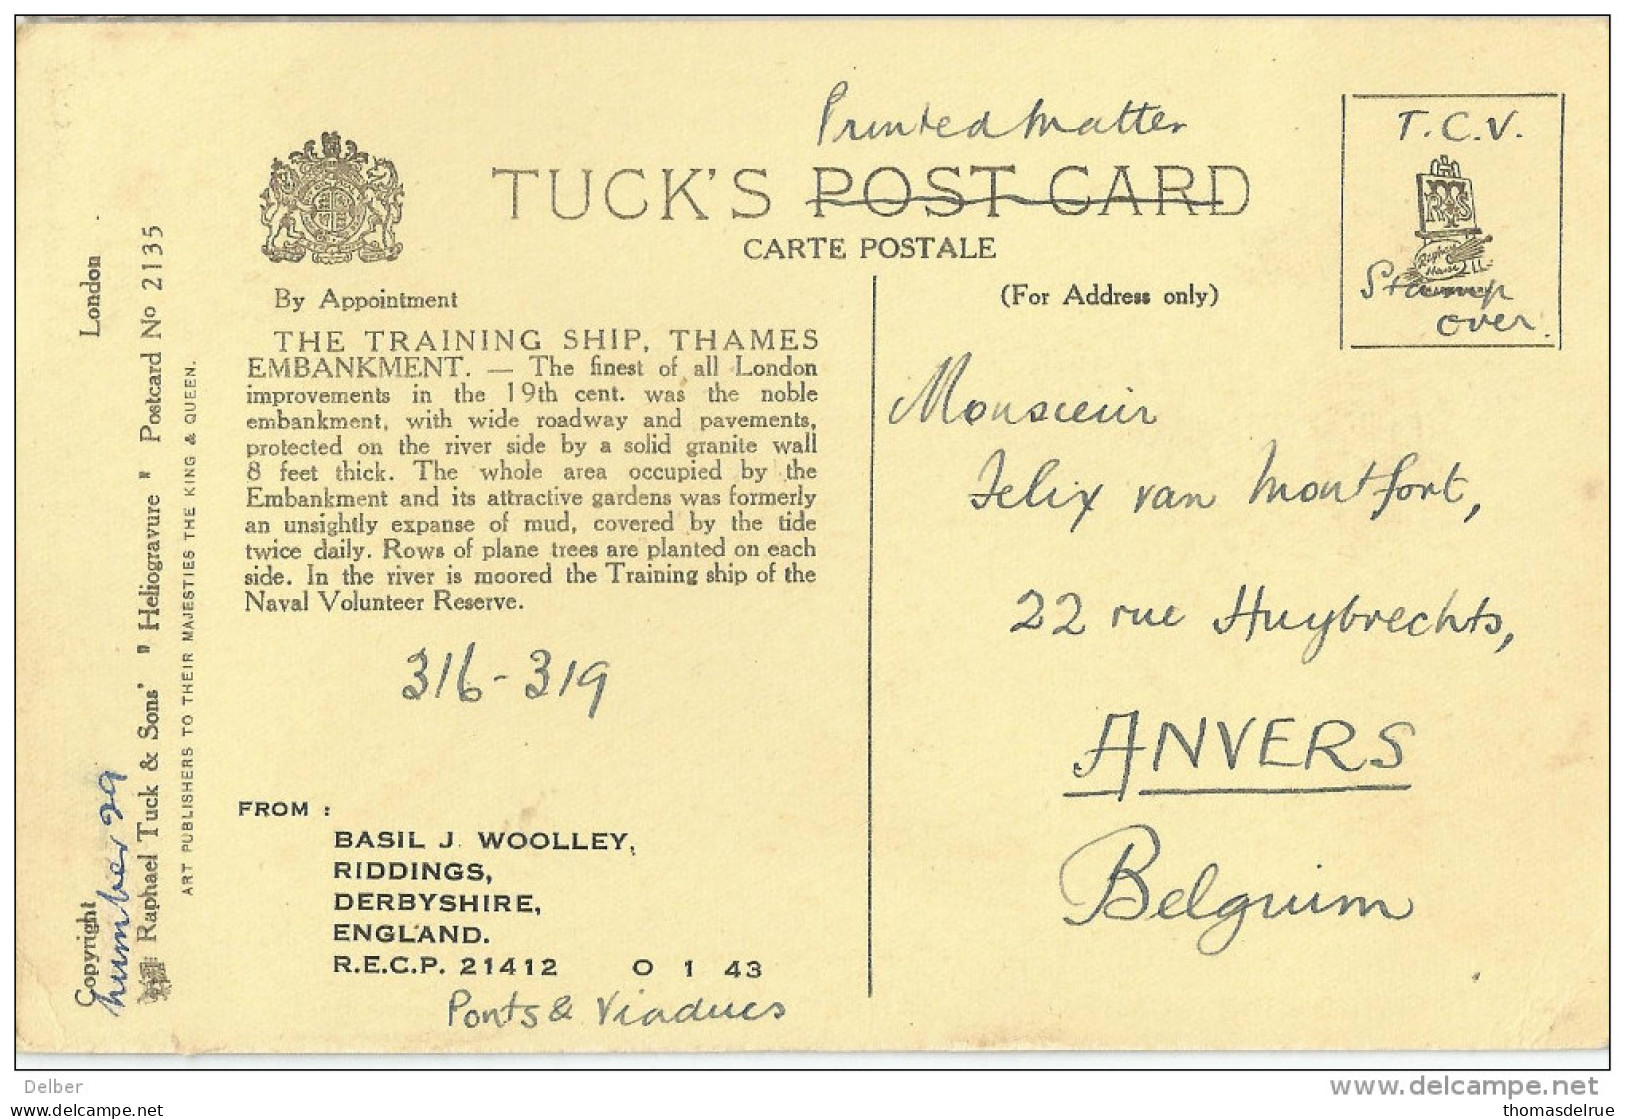 Printed Matter
T.C.V.
TUCK'S POST CARD
CARTE POSTALE
Stamp
over.
By Appointment
(For Address only)
THE TRAINING SHIP, THAMES
EMBANKMENT. — The finest of all London
improvements in the 19th cent. was the noble
embankment, with wide roadway and pavements,
protected on the river side by a solid granite wall
8 feet thick. The whole area occupied by the
Embankment and its attractive gardens was formerly
an unsightly expanse of mud, covered by the tide
twice daily. Rows of plane trees are planted on each
side. In the river is moored the Training ship of the
Naval Volunteer Reserve.
316-319
Monsieur
Felix van Montfort,
22 rue Huybrechts,
ANVERS
Belguim
FROM :
BASIL J. WOOLLEY,
RIDDINGS,
DERBYSHIRE,
ENGLAND.
R.E.C.P. 21412 O 1 43
Ponts & Viaducs
Copyright London
number 29
Raphael Tuck & Sons' "Heliogravure" Postcard No 2135
ART PUBLISHERS TO THEIR MAJESTIES THE KING & QUEEN.
Delber
www.delcampe.net
thomasdelrue